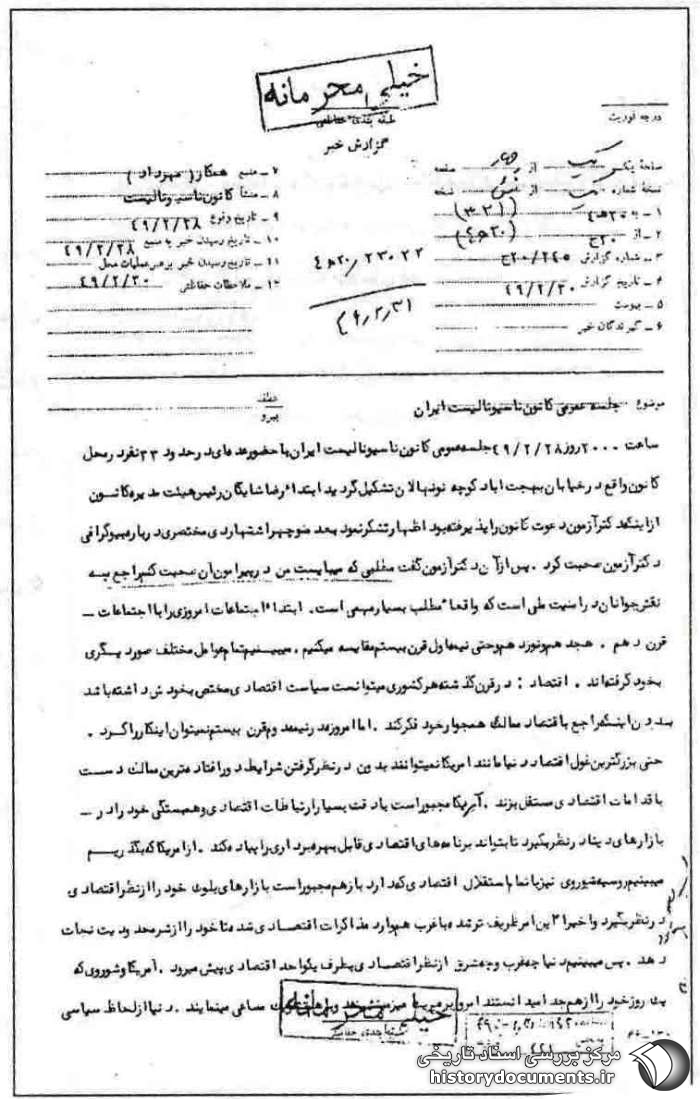 خیلی محرمانه
طبقه بندی حفاظتی
گزارش خبر
درجه فوریت
صفحه یک از چهار صفحه
نسخه شماره یک از شش نسخه
۱ ـ به ۲۰ ه‍ ۴ (۳۲۱)
۲ ـ از ۲۰ ج (۲۰ ه‍ ۴)
۳ ـ شماره گزارش ۲۰/۲۴۵ ج
۴ ـ تاریخ گزارش ۴۹/۲/۳۰
۵ ـ پیوست
۶ ـ گیرندگان خبر
۷ ـ منبع همکار (مهرداد)
۸ ـ منشأ کانون ناسیونالیست
۹ ـ تاریخ وقوع ۴۹/۲/۲۸
۱۰ ـ تاریخ رسیدن خبر به منبع ۴۹/۲/۲۸
۱۱ ـ تاریخ رسیدن خبر برهبر عملیات محل ۴۹/۲/۳۰
۱۲ ـ ملاحظات حفاظتی
۴۹٫۲٫۳۱
موضوع جلسه عمومی کانون ناسیونالیست ایران
عطف
پیرو
ساعت ۲۰۰۰ روز ۴۹/۲/۲۸ جلسه عمومی کانون ناسیونالیست ایران با حضور عده‌ای در حدود ۳۳ نفر در محل
کانون واقع در خیابان بهجت اباد کوچه نونهالان تشکیل گردید ابتدا رضا شایگان رئیس هیئت مدیره کانون
از اینکه دکتر آزمون دعوت کانون را پذیرفته بود اظهار تشکر نمود بعد منوچهر اشتهاردی مختصری درباره بیوگرافی
دکتر آزمون صحبت کرد . پس از آن دکتر آزمون گفت مطلبی که میبایست من در پیرامون آن صحبت کنم راجع به
نقش جوانان در امنیت ملی است که واقعا مطلب بسیار مهمی است . ابتدا اجتماعات امروزی را با اجتماعات ـ
قرن دهم . هجدهم و نوزدهم و حتی نیمه اول قرن بیستم مقایسه میکنیم . میبینیم تمام عوامل مختلف صورت دیگری
بخود گرفته‌اند . اقتصاد : در قرن گذشته هر کشوری میتوانست سیاست اقتصادی مختص بخودش داشته باشد
بدون اینکه راجع باقتصاد ممالک همجوار خود فکر کند . اما امروزه در نیمه دوم قرن بیستم نمیتوان اینکار را کرد .
حتی بزرگترین غول اقتصاد دنیا مانند امریکا نمیتوانند بدون در نظر گرفتن شرایط دور افتاده‌ترین ممالک دست
باقدامات اقتصادی مستقل بزند . آمریکا مجبور است با دقت بسیار ارتباطات اقتصادی و همبستگی خود را در ـ
بازارهای دنیا در نظر بگیرد تا بتواند برنامه‌های اقتصادی قابل بهره برداری را پیاده کند . از امریکا که بگذریم
میبینیم روسیه شوروی نیز با تمام استقلال اقتصادی که دارد باز هم مجبور است بازارهای بلوک خود را از نظر اقتصادی
در نظر بگیرد و اخیرا این امر ظریف‌تر شده با غرب هم وارد مذاکرات اقتصادی شد تا خود را از شر محدودیت نجات
دهد . پس میبینیم دنیا چه غرب و چه شرق از نظر اقتصادی بطرف یکواحد اقتصادی پیش میرود . آمریکا و شوروی که
یک روز خود را از هم جدا میدانستند امروز مساعی مینمایند . دنیا از لحاظ سیاسی
خیلی محرمانه
مرکز بررسی اسناد تاریخی
historydocuments.ir